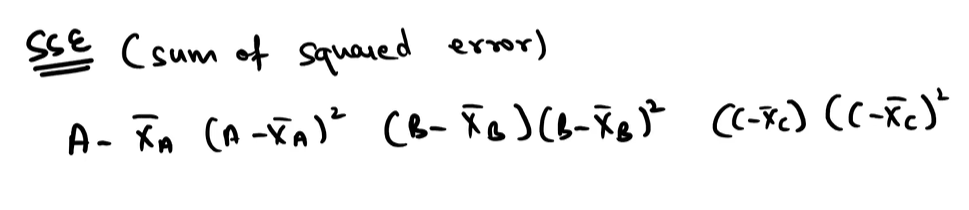 SSE (sum of squared error)
A - X̄A (A - X̄A)² (B - X̄B) (B - X̄B)² (C - X̄C) (C - X̄C)²